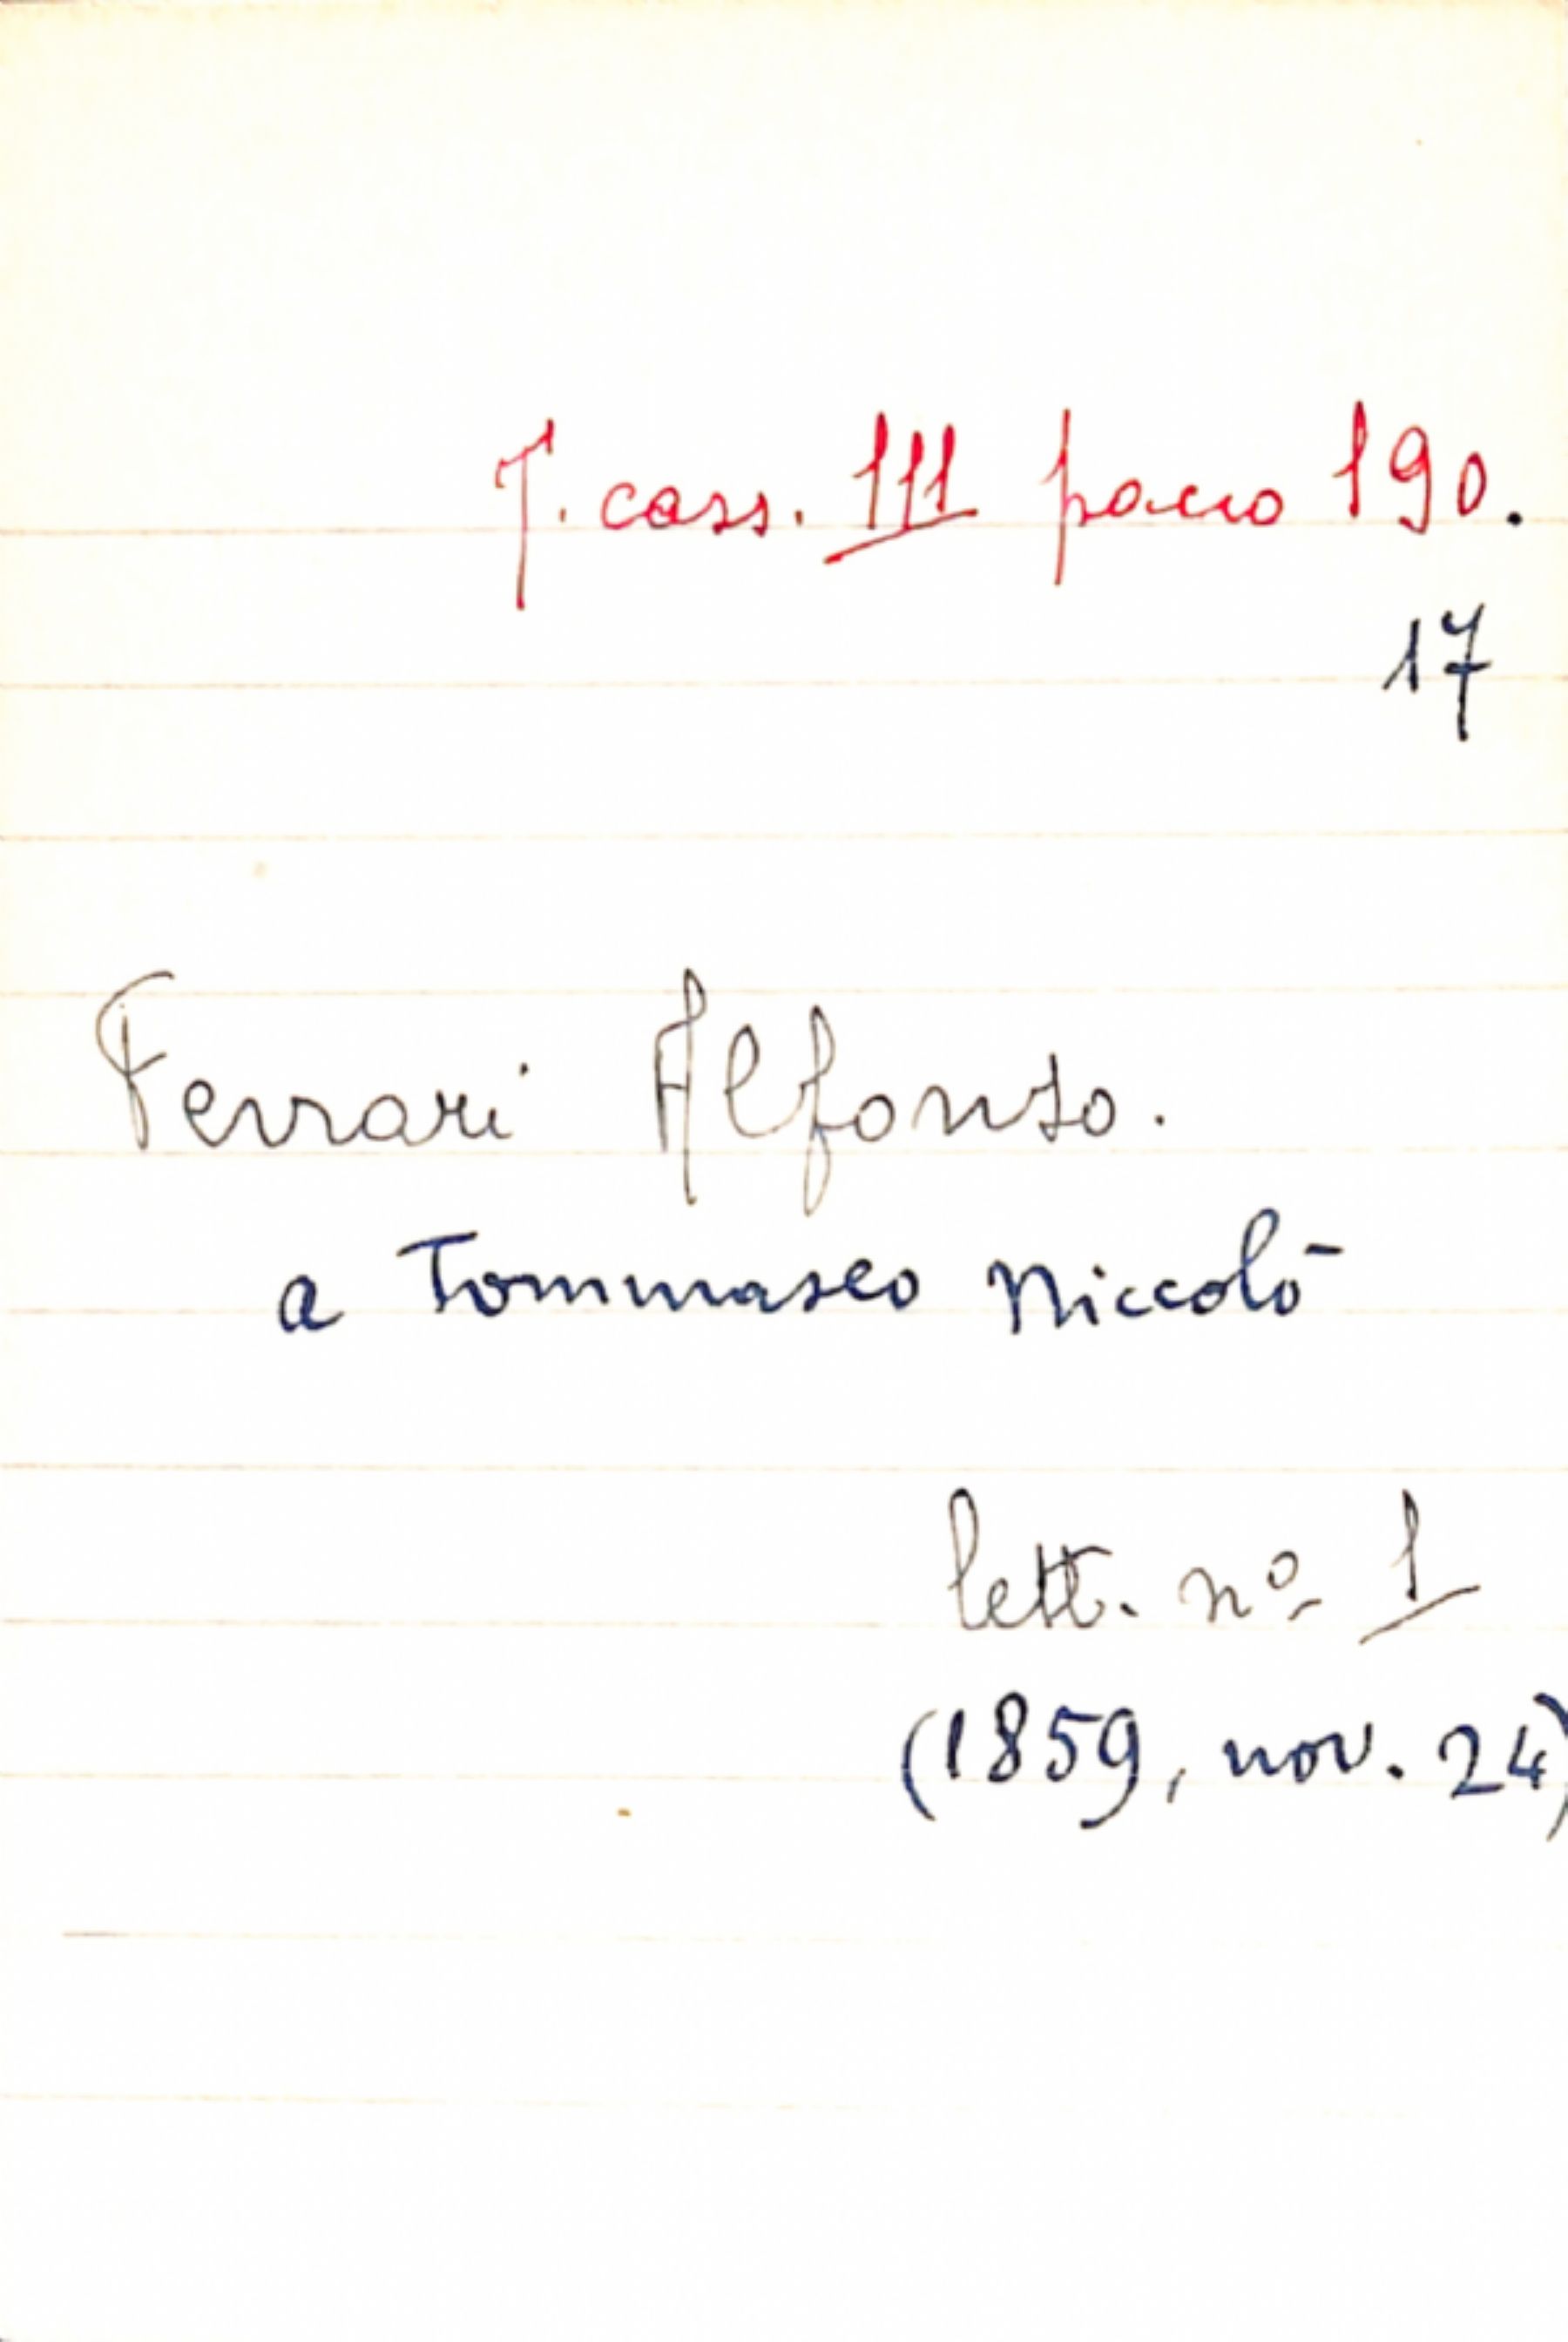 T. cass. III pacco 190.
17
Ferrari Alfonso.
a Tommaseo Niccolò
lett. nº 1
(1859, nov. 24)